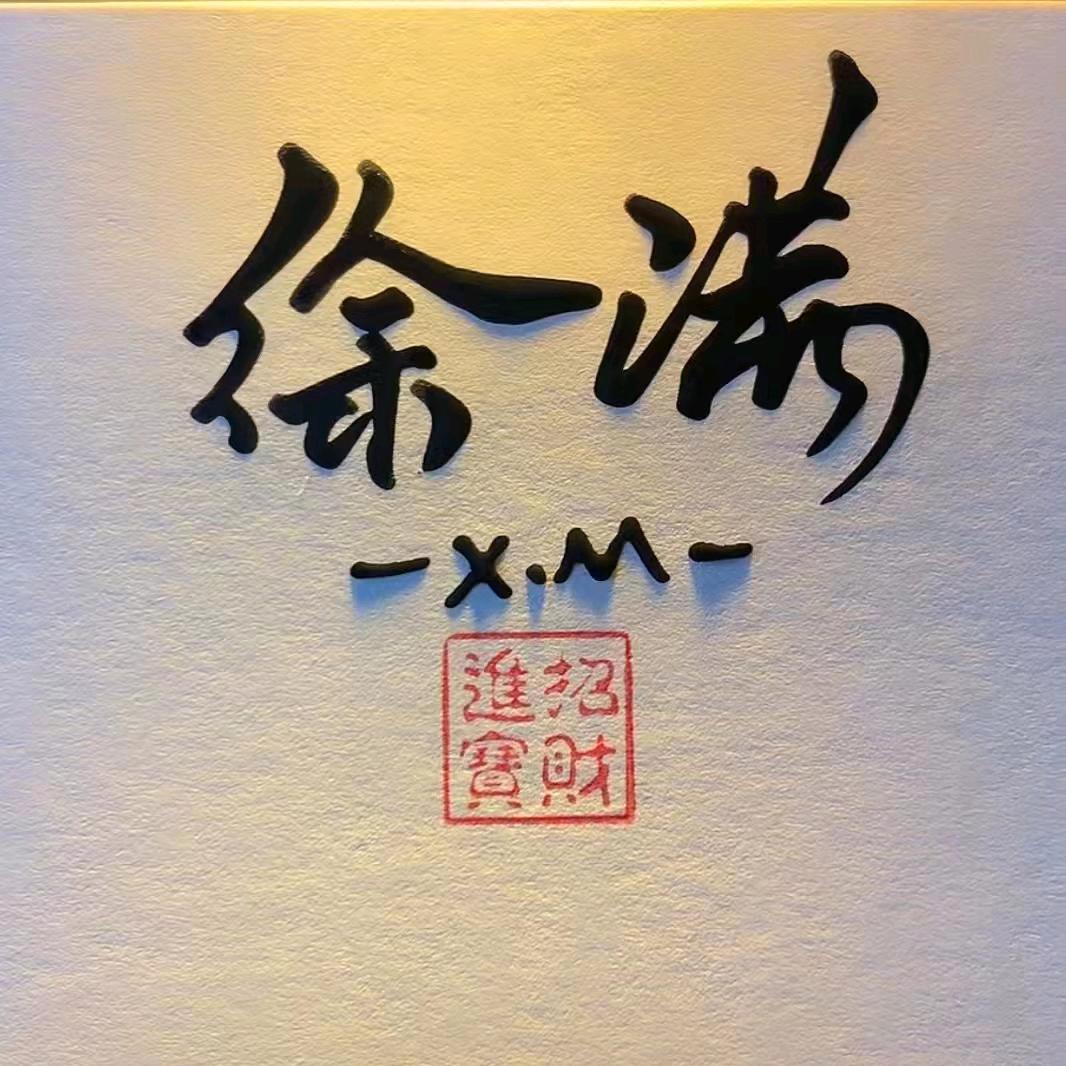 徐满
-X.M-
招財
進寶